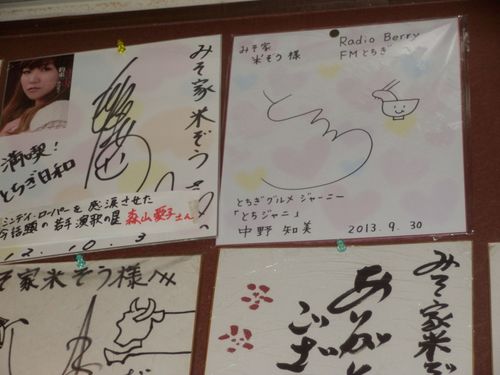 みそ家 米ぞうさんへ
満喫!
とちぎ日和
シンディ・ローパーを感涙させた
今話題の若手演歌の星 森山愛子さん
12.10.3
みそ家
米ぞう様
Radio Berry
FMとちぎ
とちぎグルメ ジャーニー
「とちジャニ」
中野 知美
2013.9.30
そ家米ぞう様へ
みそ家米そ
ありがと
ござ